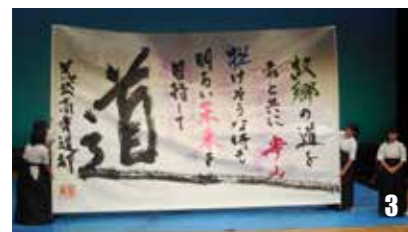 故郷の道を
君と共に歩み
挫けそうな時も
明るい未来を
目指して
道
書道部
3